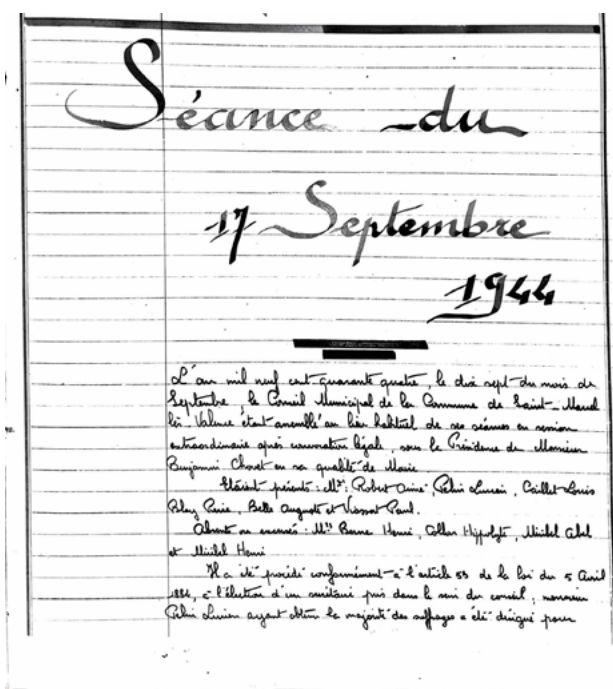 Séance du
17 Septembre
1944
L'an mil neuf cent quarante quatre, le dix sept du mois de
Septembre, le Conseil Municipal de la Commune de Saint-Marcel
lès-Valence étant assemblé au lieu habituel de ses séances en session
extraordinaire après convocation légale, sous la Présidence de Monsieur
Benjamin Chovet en sa qualité de Maire
Etaient présents : Mrs: Robert Aimé, Lucien, Caillet Louis
Belle Auguste et Paul.
Absents ou excusés : Mrs Henri, Collas Hippolyte, Michel Abel
et Michel Henri
Il a été procédé conformément à l'article 53 de la Loi du 5 Avril
1884, à l'élection d'un secrétaire pris dans le sein du conseil ; monsieur
Lucien ayant obtenu la majorité des suffrages a été désigné pour